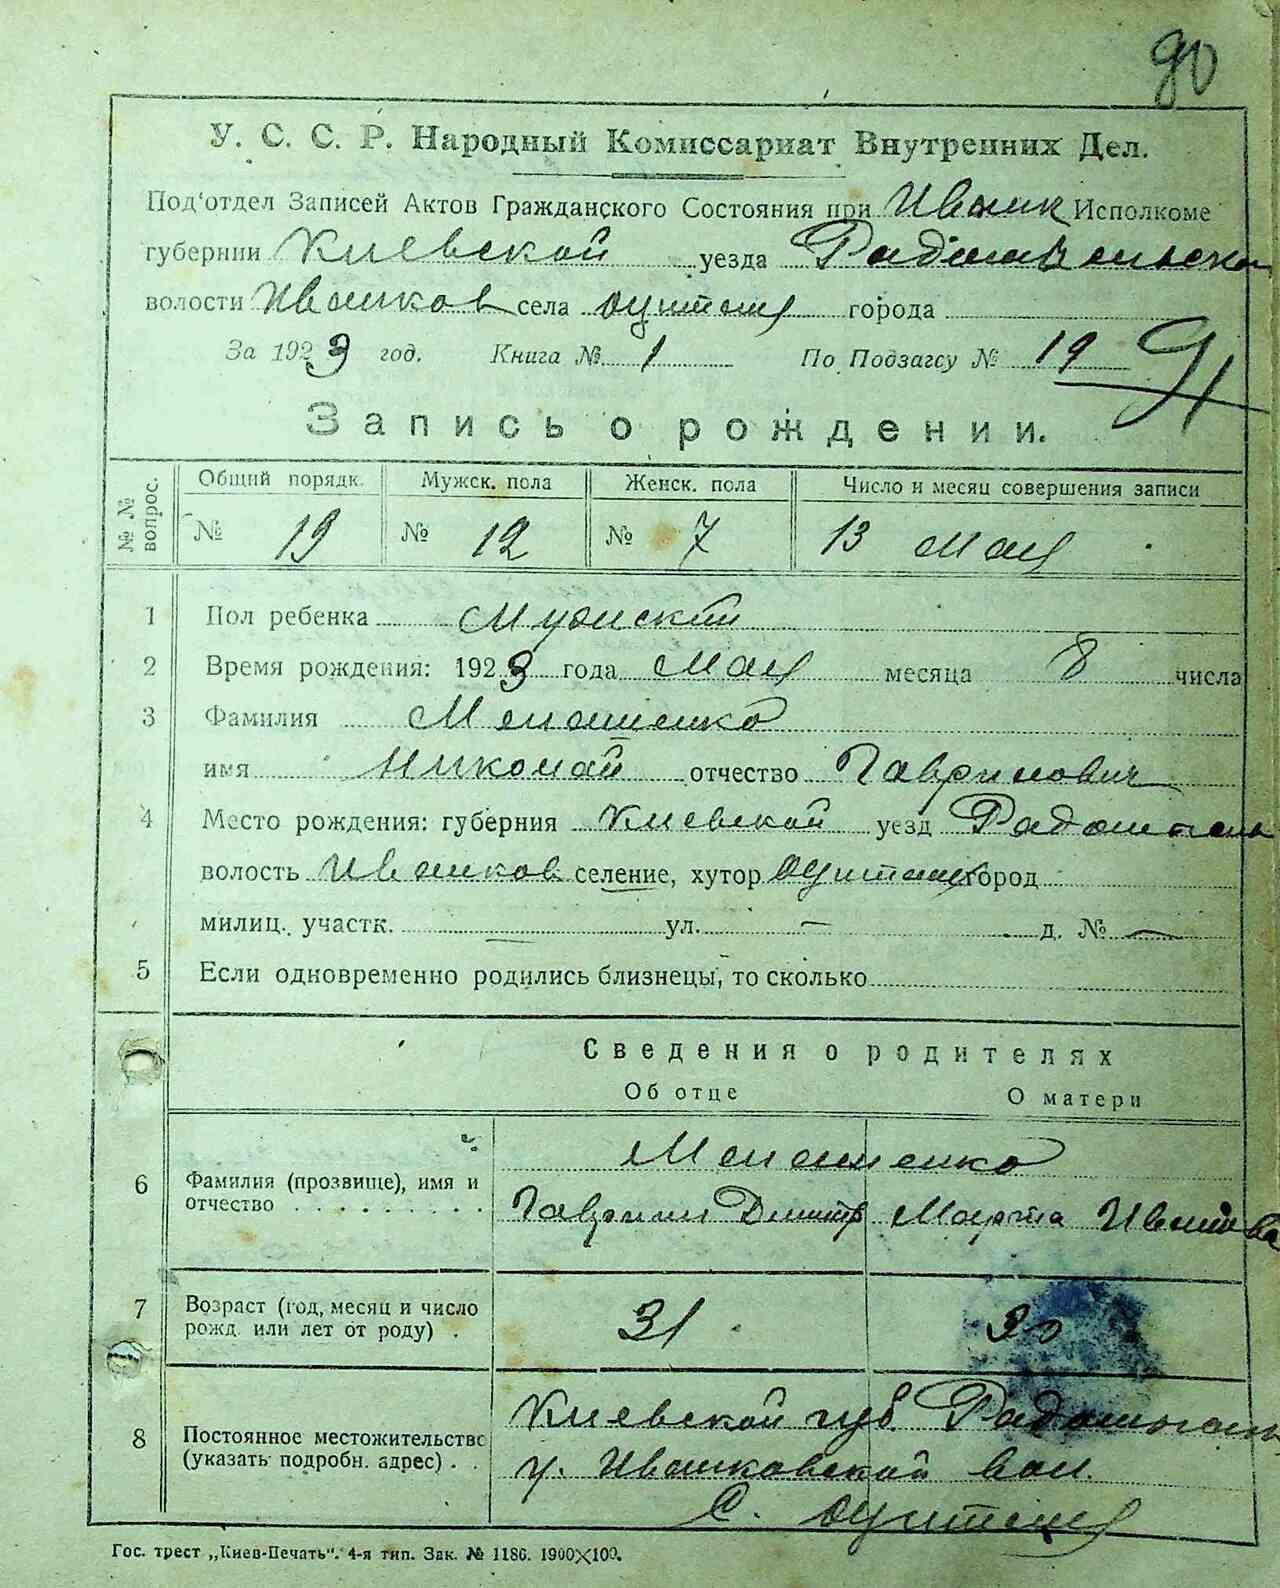 90
У. С. С. Р. Народный Комиссариат Внутренних Дел.
Под'отдел Записей Актов Гражданского Состояния при Иванк Исполкоме
губернии Киевской уезда
волости Иванков села города
За 1923 год. Книга № 1 По Подзагсу № 19 91
Запись о рождении.
№ № вопрос. Общий порядк. Мужск. пола Женск. пола Число и месяц совершения записи
№ 19 № 12 № 7 13 мая
1 Пол ребенка Мужский
2 Время рождения: 1923 года мая месяца 8 числа
3 Фамилия
имя Николай отчество Гаврилович
4 Место рождения: губерния Киевской уезд Радомысль
волость Иванков селение, хутор город
милиц. участк. — ул. — д. № —
5 Если одновременно родились близнецы, то сколько
Сведения о родителях
Об отце О матери
6 Фамилия (прозвище), имя и отчество . . . . . . . . .
Гавриил Дмитр Марта Иванова
7 Возраст (год, месяц и число рожд. или лет от роду) . 31 30
8 Постоянное местожительство (указать подробн. адрес) . .
Киевской губ. Радомысль
у. Иванковской вол.
с.
Гос. трест „Киев-Печать". 4-я тип. Зак. № 1186. 1900×100.